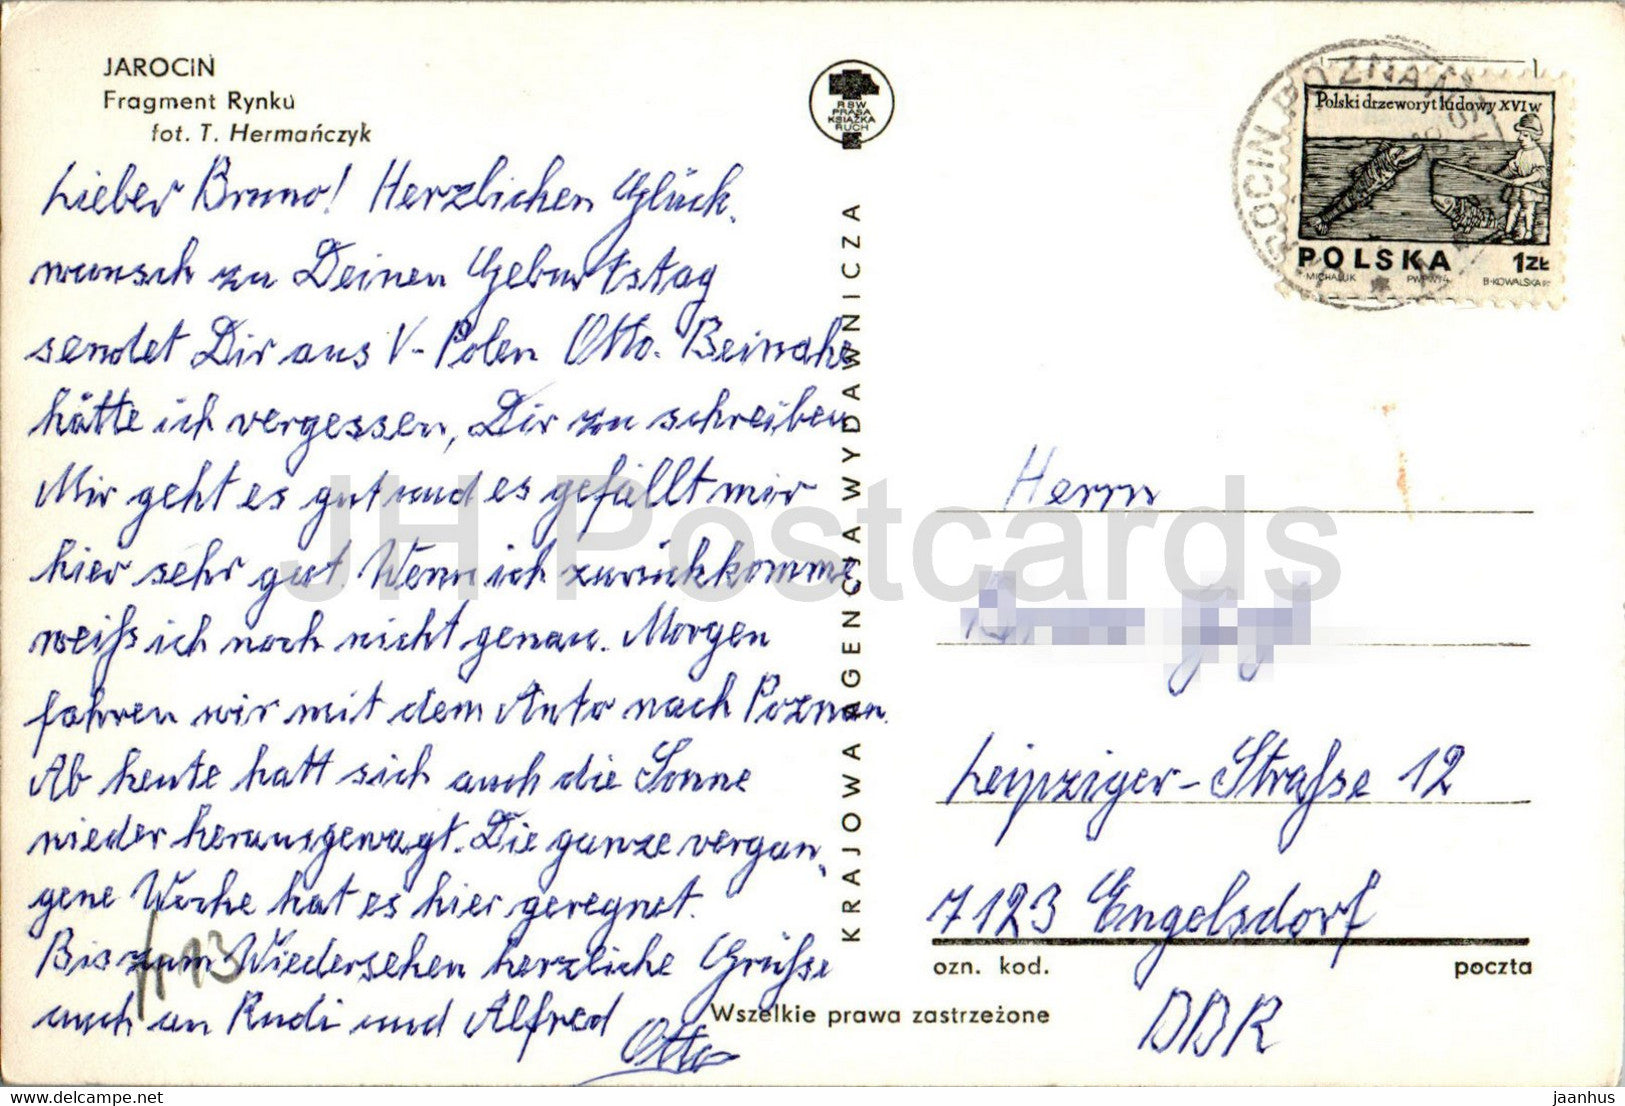 JAROCIN
Fragment Rynku
fot. T. Hermańczyk
RSW
PRASA
KSIĄŻKA
RUCH
Lieber Bruno! Herzlichen Glück-
wunsch zu Deinen Geburtstag
sendet Dir aus V-Polen Otto. Beinahe
hätte ich vergessen, Dir zu schreiben
Mir geht es gut und es gefällt mir
hier sehr gut Wenn ich zurückkomme
weiß ich noch nicht genau. Morgen
fahren wir mit dem Auto nach Poznan.
Ab heute hatt sich auch die Sonne
wieder herausgewagt. Die ganze vergan-
gene Woche hat es hier geregnet.
Bis zum Wiedersehen herzliche Grüße
auch an Rudi und Alfred
Otto
13
KRAJOWA AGENCJA WYDAWNICZA
Polski drzeworyt ludowy XVI w
POLSKA 1ZŁ
MICHALUK PWPW B·KOWALSKA
JH Postcards
Herrn
Leipziger-Straße 12
7123 Engelsdorf
ozn. kod. poczta
DDR
Wszelkie prawa zastrzeżone
https://www.delcampe.net jaanhus